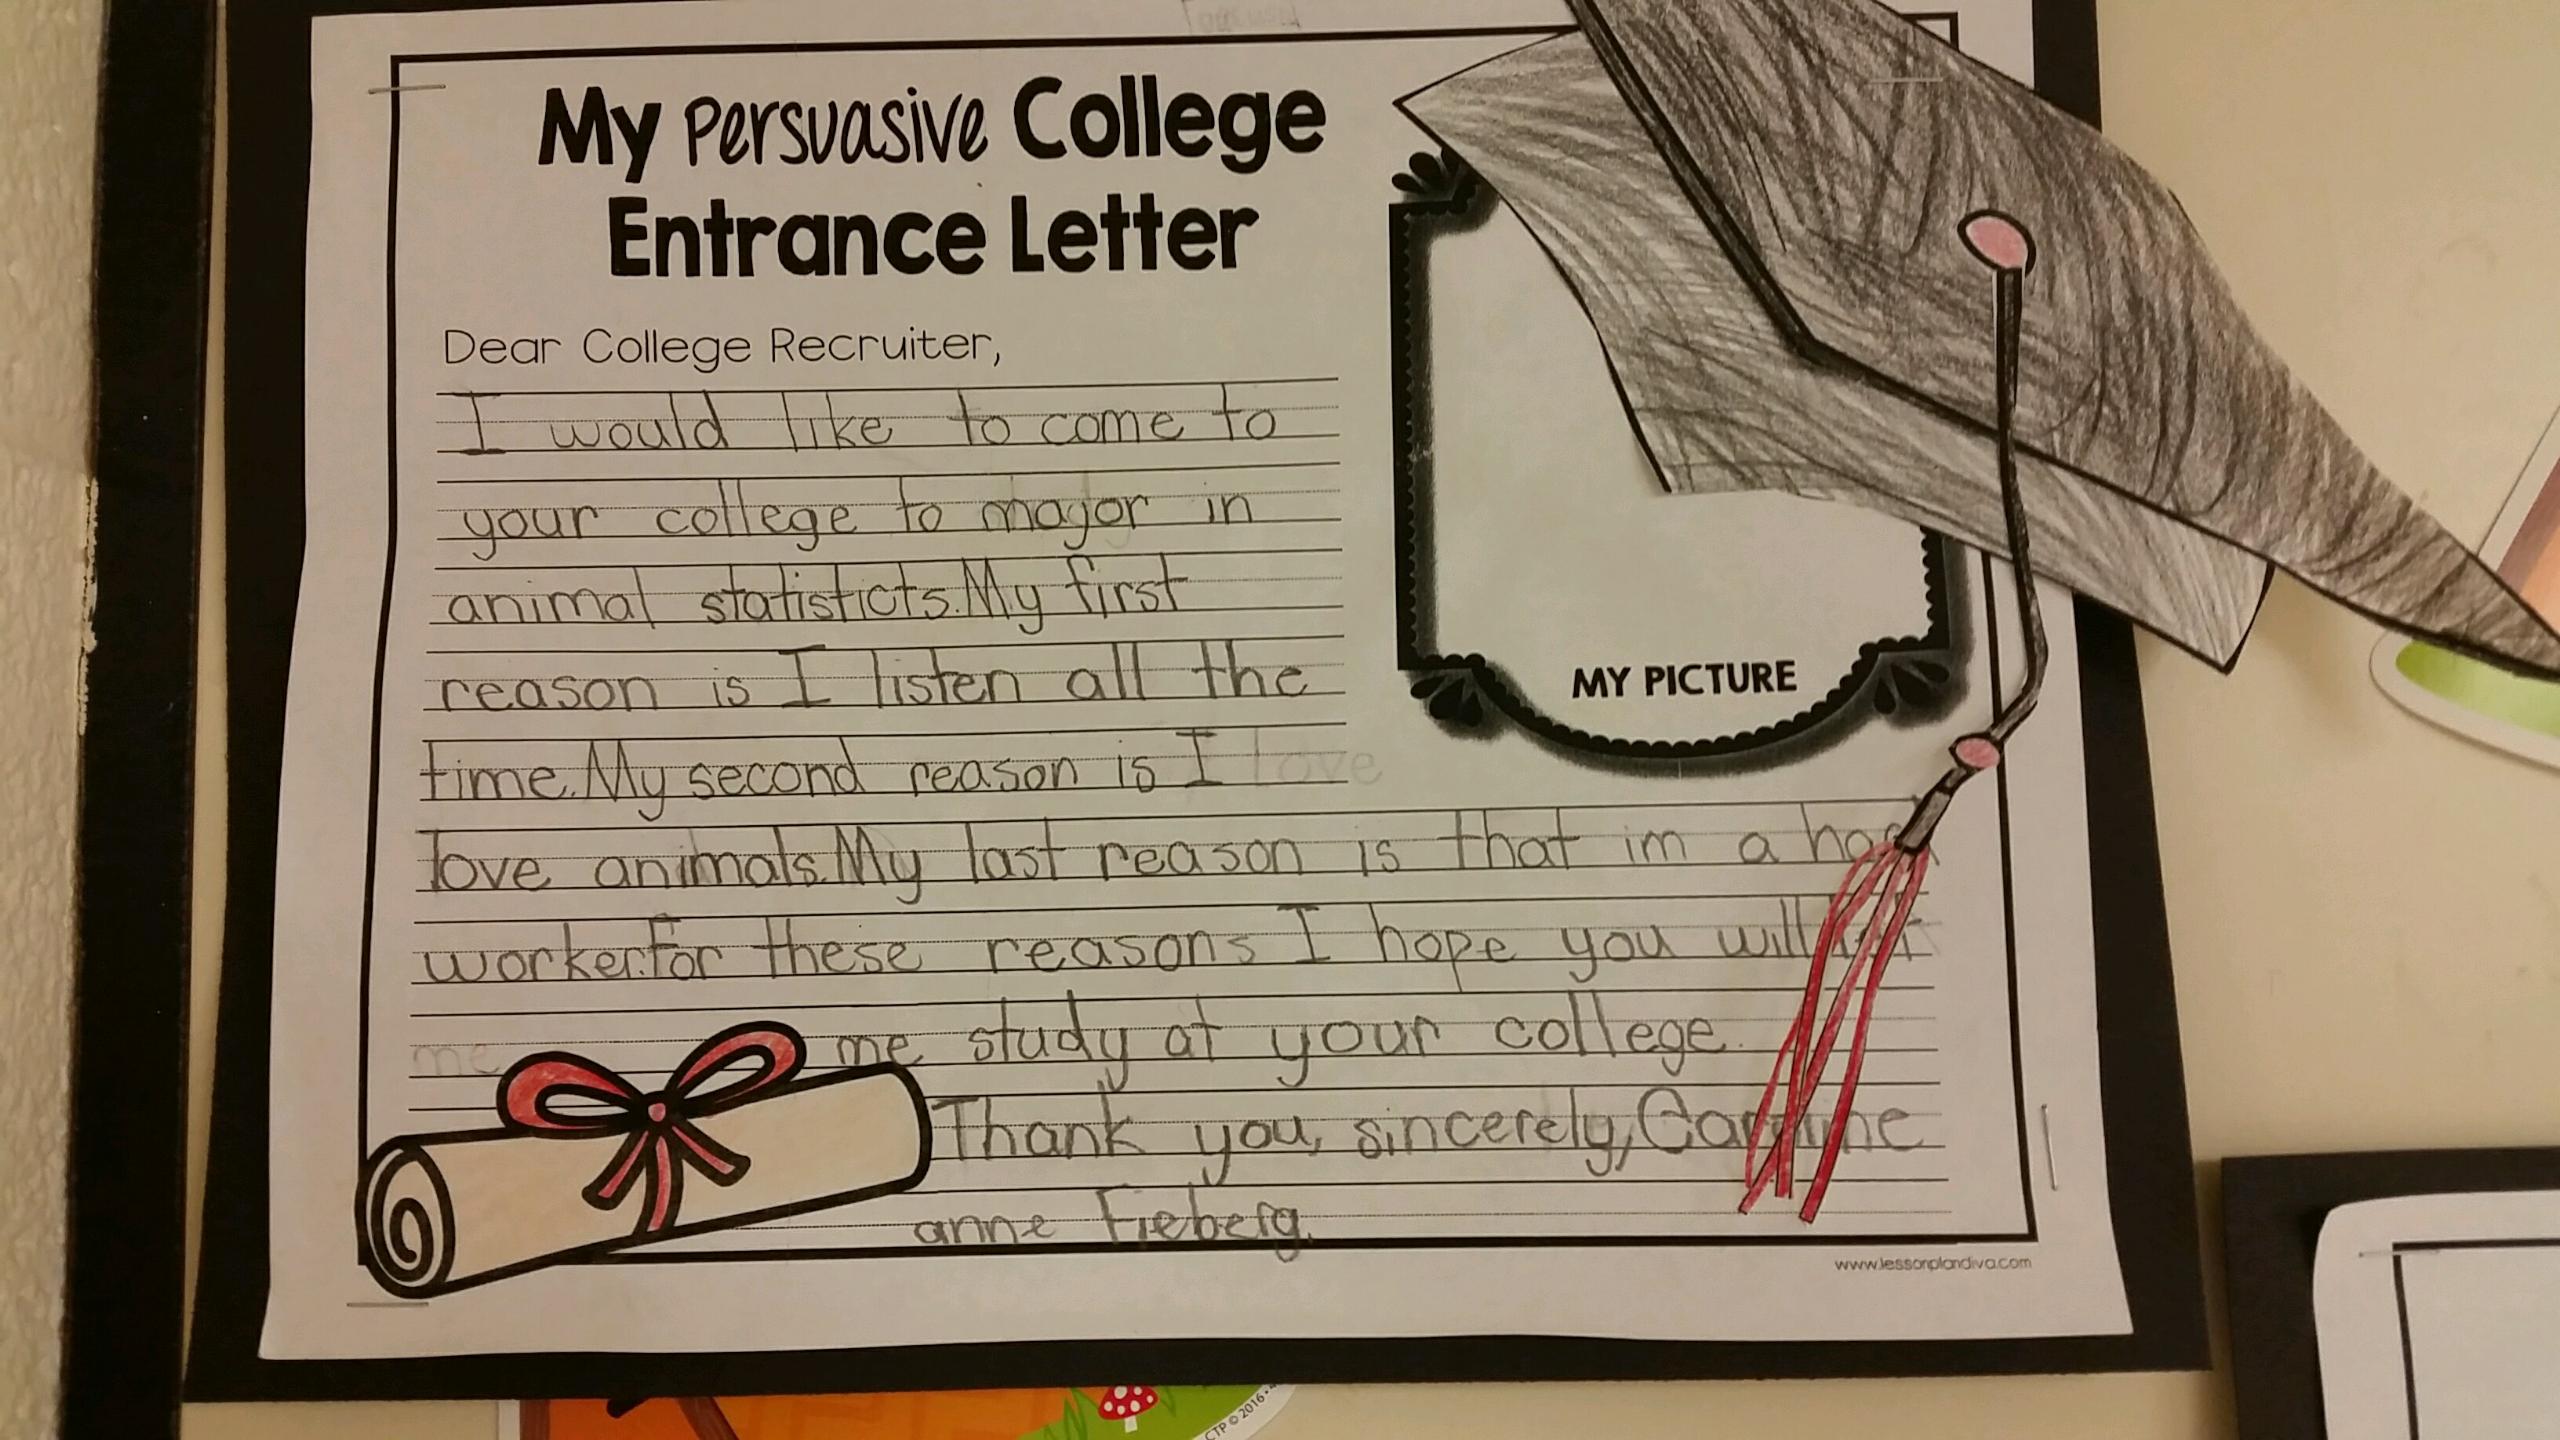 My Persuasive College
Entrance Letter
Dear College Recruiter,
I would like to come to
your college to major in
animal statisticts.My first
reason is I listen all the
time.My second reason is I love
love animals.My last reason is that im a
worker.For these reasons I hope you will
me me study at your college.
Thank you, sincerely, Caroline
anne Fieberg.
MY PICTURE
www.lessonplandiva.com
CTP © 2016